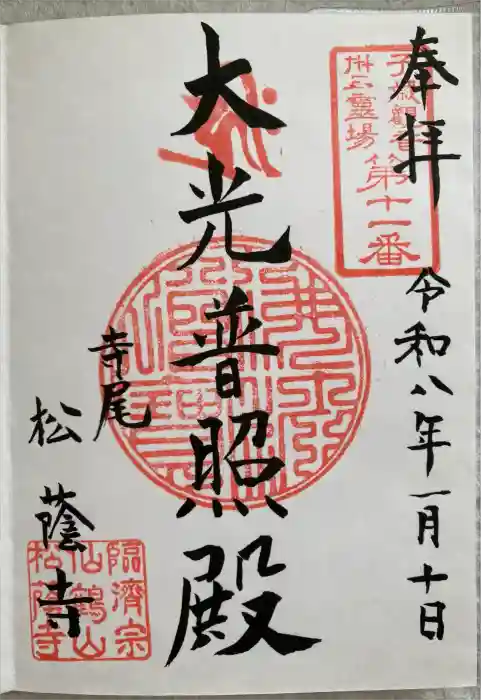 奉拝
子歳觀音
卅三靈場
第十一番
令和八年一月十日
大光普照殿
寺尾
松蔭寺
臨濟宗
仙鶴山
松蔭寺